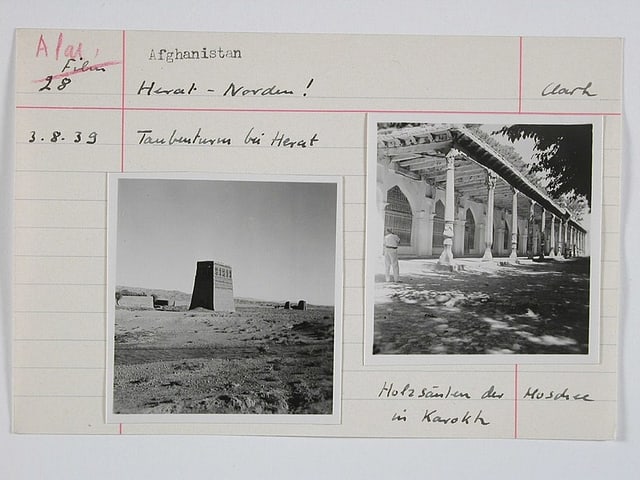 Afghanistan
Film
28
Herat - Norden!
Clark
3.8.39
Taubenturm bei Herat
Holzsäulen der Moschee
in Karokh